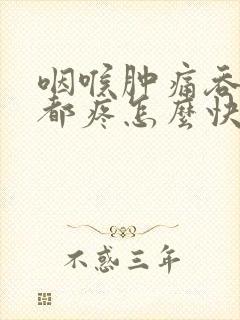 咽喉肿痛吞
都疼怎麼快
不惑三年